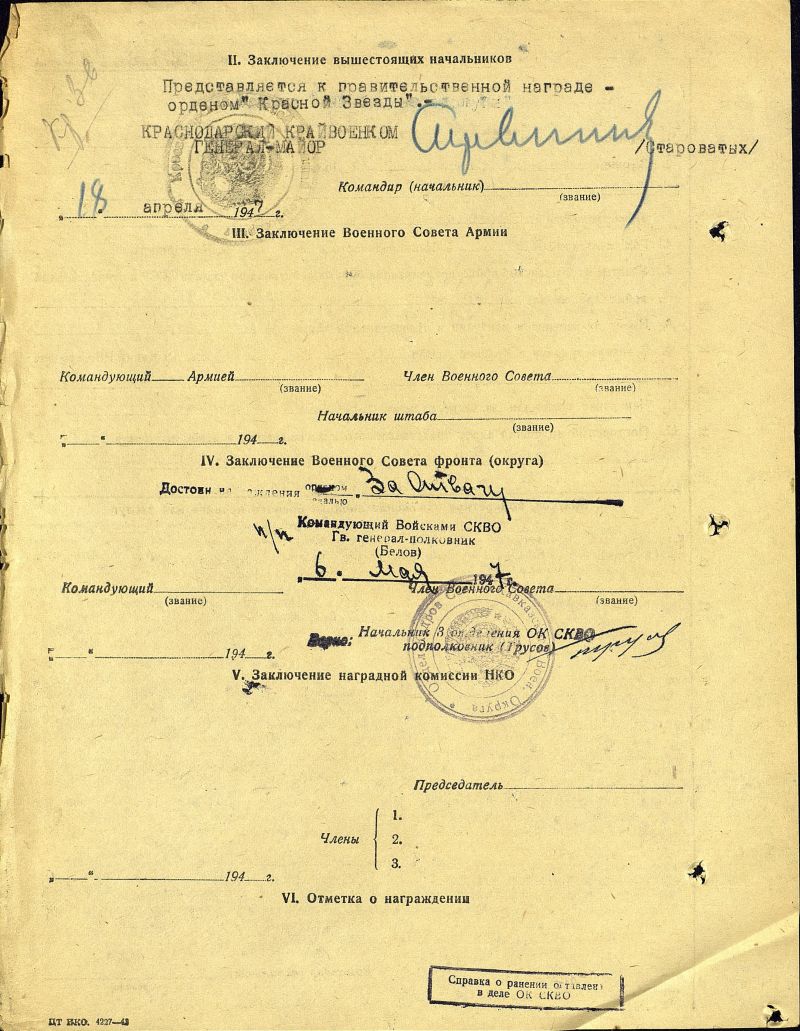 Кр Зв
II. Заключение вышестоящих начальников
Представляется к правительственной награде –
орденом" Красной Звезды".-
КРАСНОДАРСКИЙ КРАЙВОЕНКОМ
ГЕНЕРАЛ-МАЙОР
/Староватых/
Командир (начальник)
(звание)
„18" апреля 1947 г.
III. Заключение Военного Совета Армии
Командующий Армией Член Военного Совета
(звание) (звание)
Начальник штаба
(звание)
„ " 194 г.
IV. Заключение Военного Совета фронта (округа)
Достоин За Отвагу
п/п Командующий Войсками СКВО
Гв. генерал-полковник
(Белов)
„6. мая 1947 г.
Командующий Член Военного Совета
(звание) (звание)
Верно: Начальник 3 отделения ОК СКВО
подполковник (Трусов)
„ " 194 г.
V. Заключение наградной комиссии НКО
Председатель
1.
Члены 2.
3.
„ " 194 г.
VI. Отметка о награждении
Справка о ранении оставлена
в деле ОК СКВО
ЦТ НКО. 4227—43